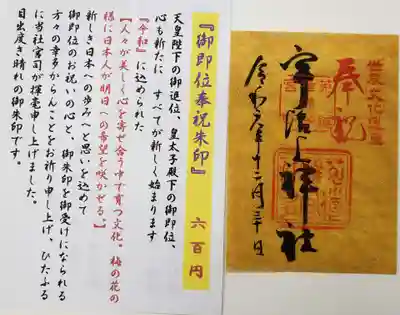 『御即位奉祝朱印』 六百円
天皇陛下の御退位、皇太子殿下の御即位、
心も新たに すべてが新しく始まります
『令和』に込められた
【人々が美しく心を寄せ合う中で育つ文化。梅の花の
様に日本人が明日への希望を咲かせる。】
新しき日本への歩みへと思いを込めて
御即位のお祝いの心と、御朱印を御受けになられる
方々の幸多からんことをお祈り申し上げ、ひたぶる
に当社宮司が揮毫申し上げました、
目出度き晴れの御朱印です。
世界文化遺産
奉祝
宇治上神社